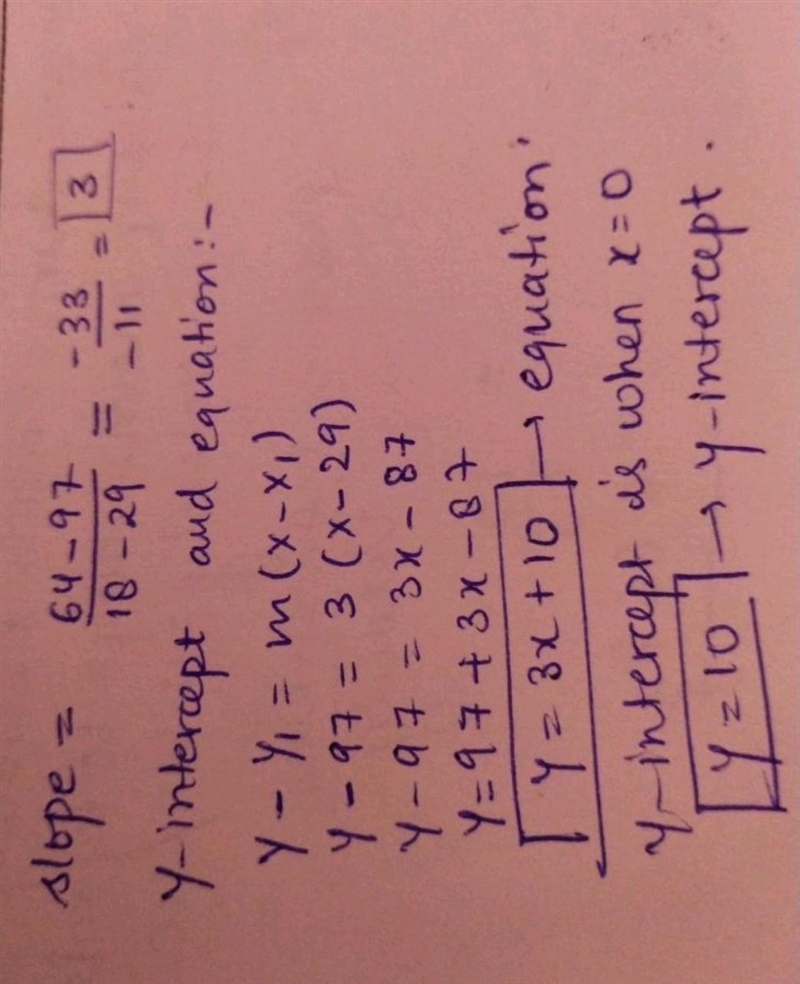 slope = 64-97/18-29 = -33/-11 = 3
y-intercept and equation:-
y - y₁ = m(x-x₁)
y - 97 = 3(x-29)
y - 97 = 3x - 87
y = 97 + 3x - 87
y = 3x + 10 → equation.
y-intercept is when x=0
y = 10 → y-intercept.